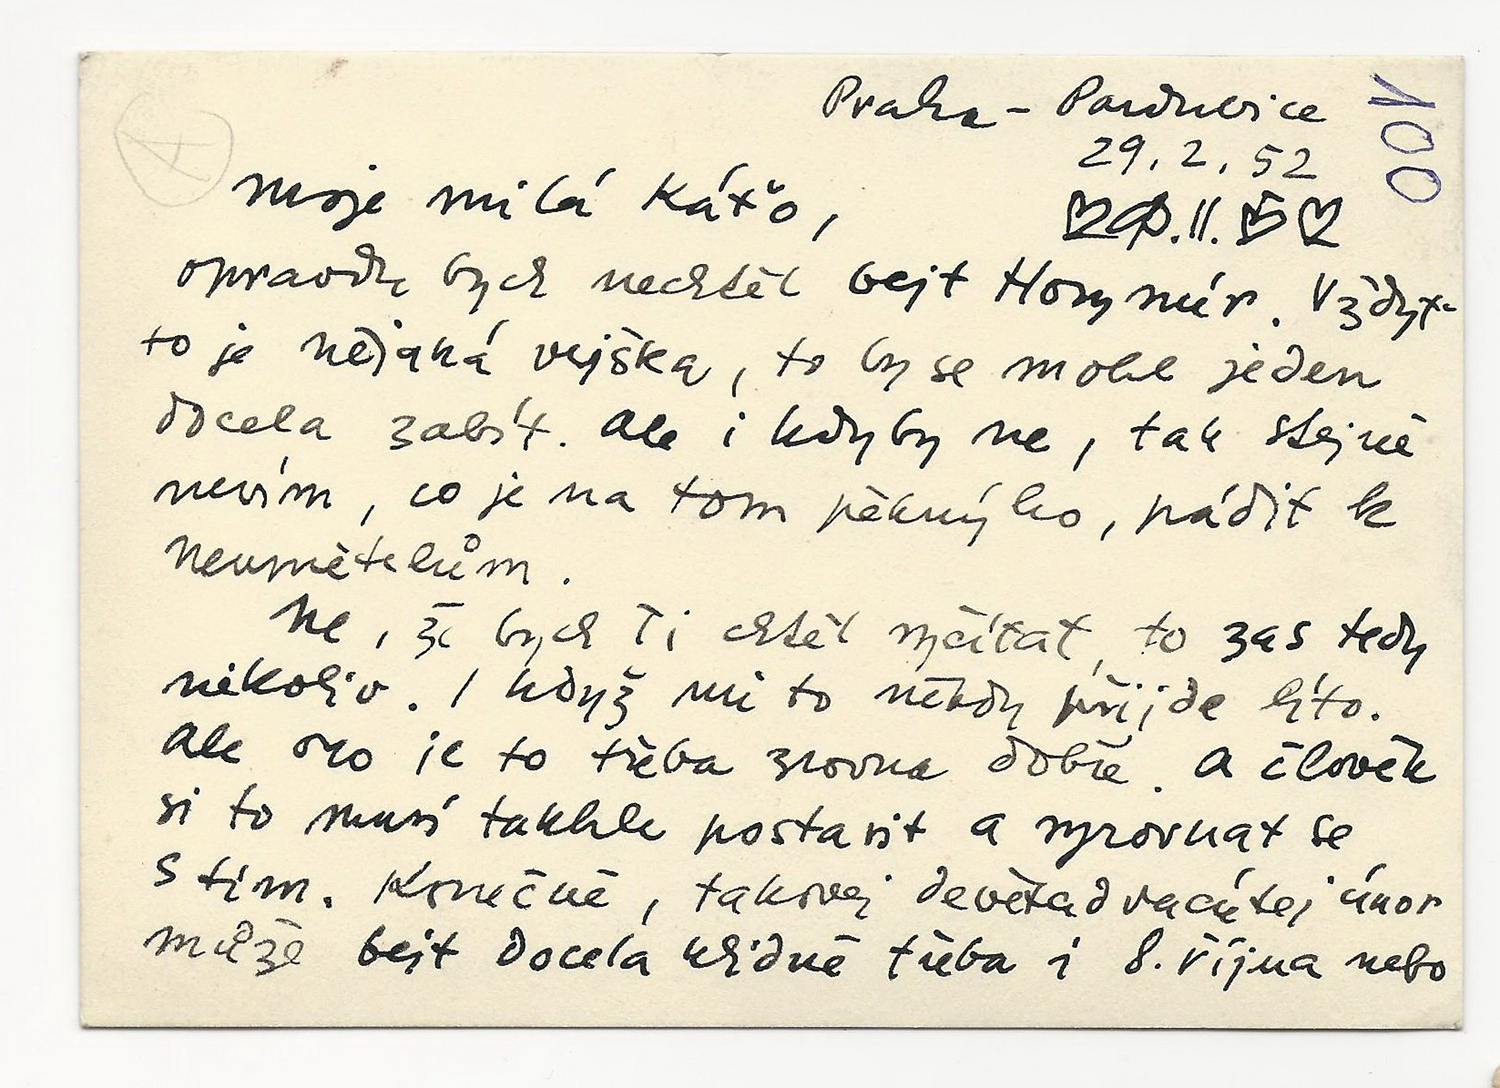 Praha - Pardubice
100
29. 2. 52
♡29.II.52♡
Moje milá Káťo,
opravdu bych nechtěl bejt Horymír. Vždyť
to je nějaká vejška, to by se mohl jeden
docela zabít. Ale i kdyby ne, tak stejně
nevím, co je na tom pěknýho, pádit k
Neumětelům.
Ne, že bych Ti chtěl vyčítat, to zas tedy
nikoliv. I když mi to někdy přijde líto.
Ale ono je to třeba zrovna dobře. A člověk
si to musí takhle postavit a vyrovnat se
s tím. Konečně, takovej devětadvacátej únor
může bejt docela klidně třeba i 8. října nebo